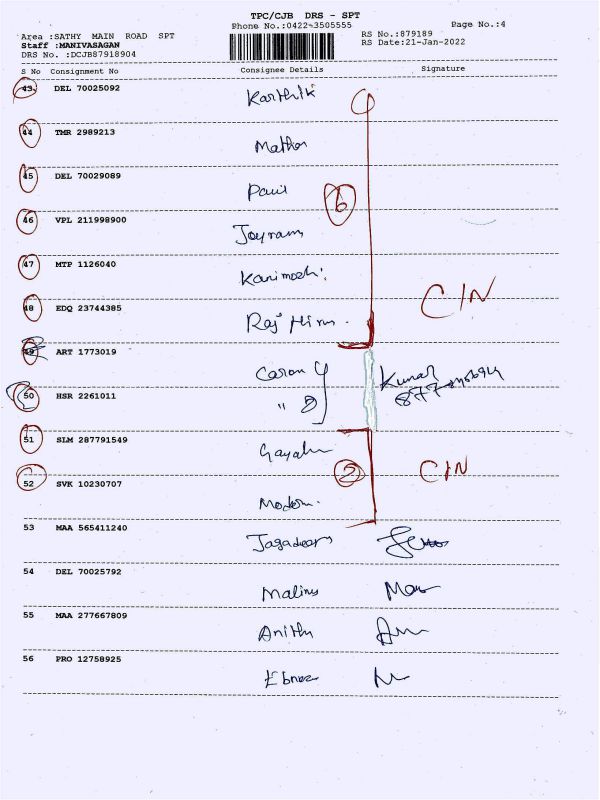 TPC/CJB DRS - SPT
Phone No.:0422-3505555
Page No.:4
Area :SATHY MAIN ROAD SPT
RS No.:879189
Staff :MANIVASAGAN
RS Date:21-Jan-2022
DRS No. :DCJB87918904
S No Consignment No Consignee Details Signature
43 DEL 70025092 Karthik
44 TMR 2989213 Mathan
45 DEL 70029089 Paul
6
46 VPL 211998900 Jayram
47 MTP 1126040 Kanimozhi
CIN
48 EDQ 23744385 Raj Hirn
49 ART 1773019 Caron
Kumar
50 HSR 2261011 "
51 SLM 287791549 Gayath
2 CIN
52 SVK 10230707
53 MAA 565411240
54 DEL 70025792 Malins
55 MAA 277667809 Anith
56 PRO 12758925 Ebnez